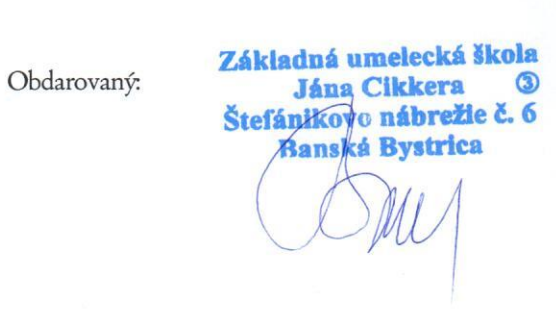 Obdarovaný:
Základná umelecká škola
Jána Cikkera ③
Štefánikovo nábrežie č. 6
Banská Bystrica